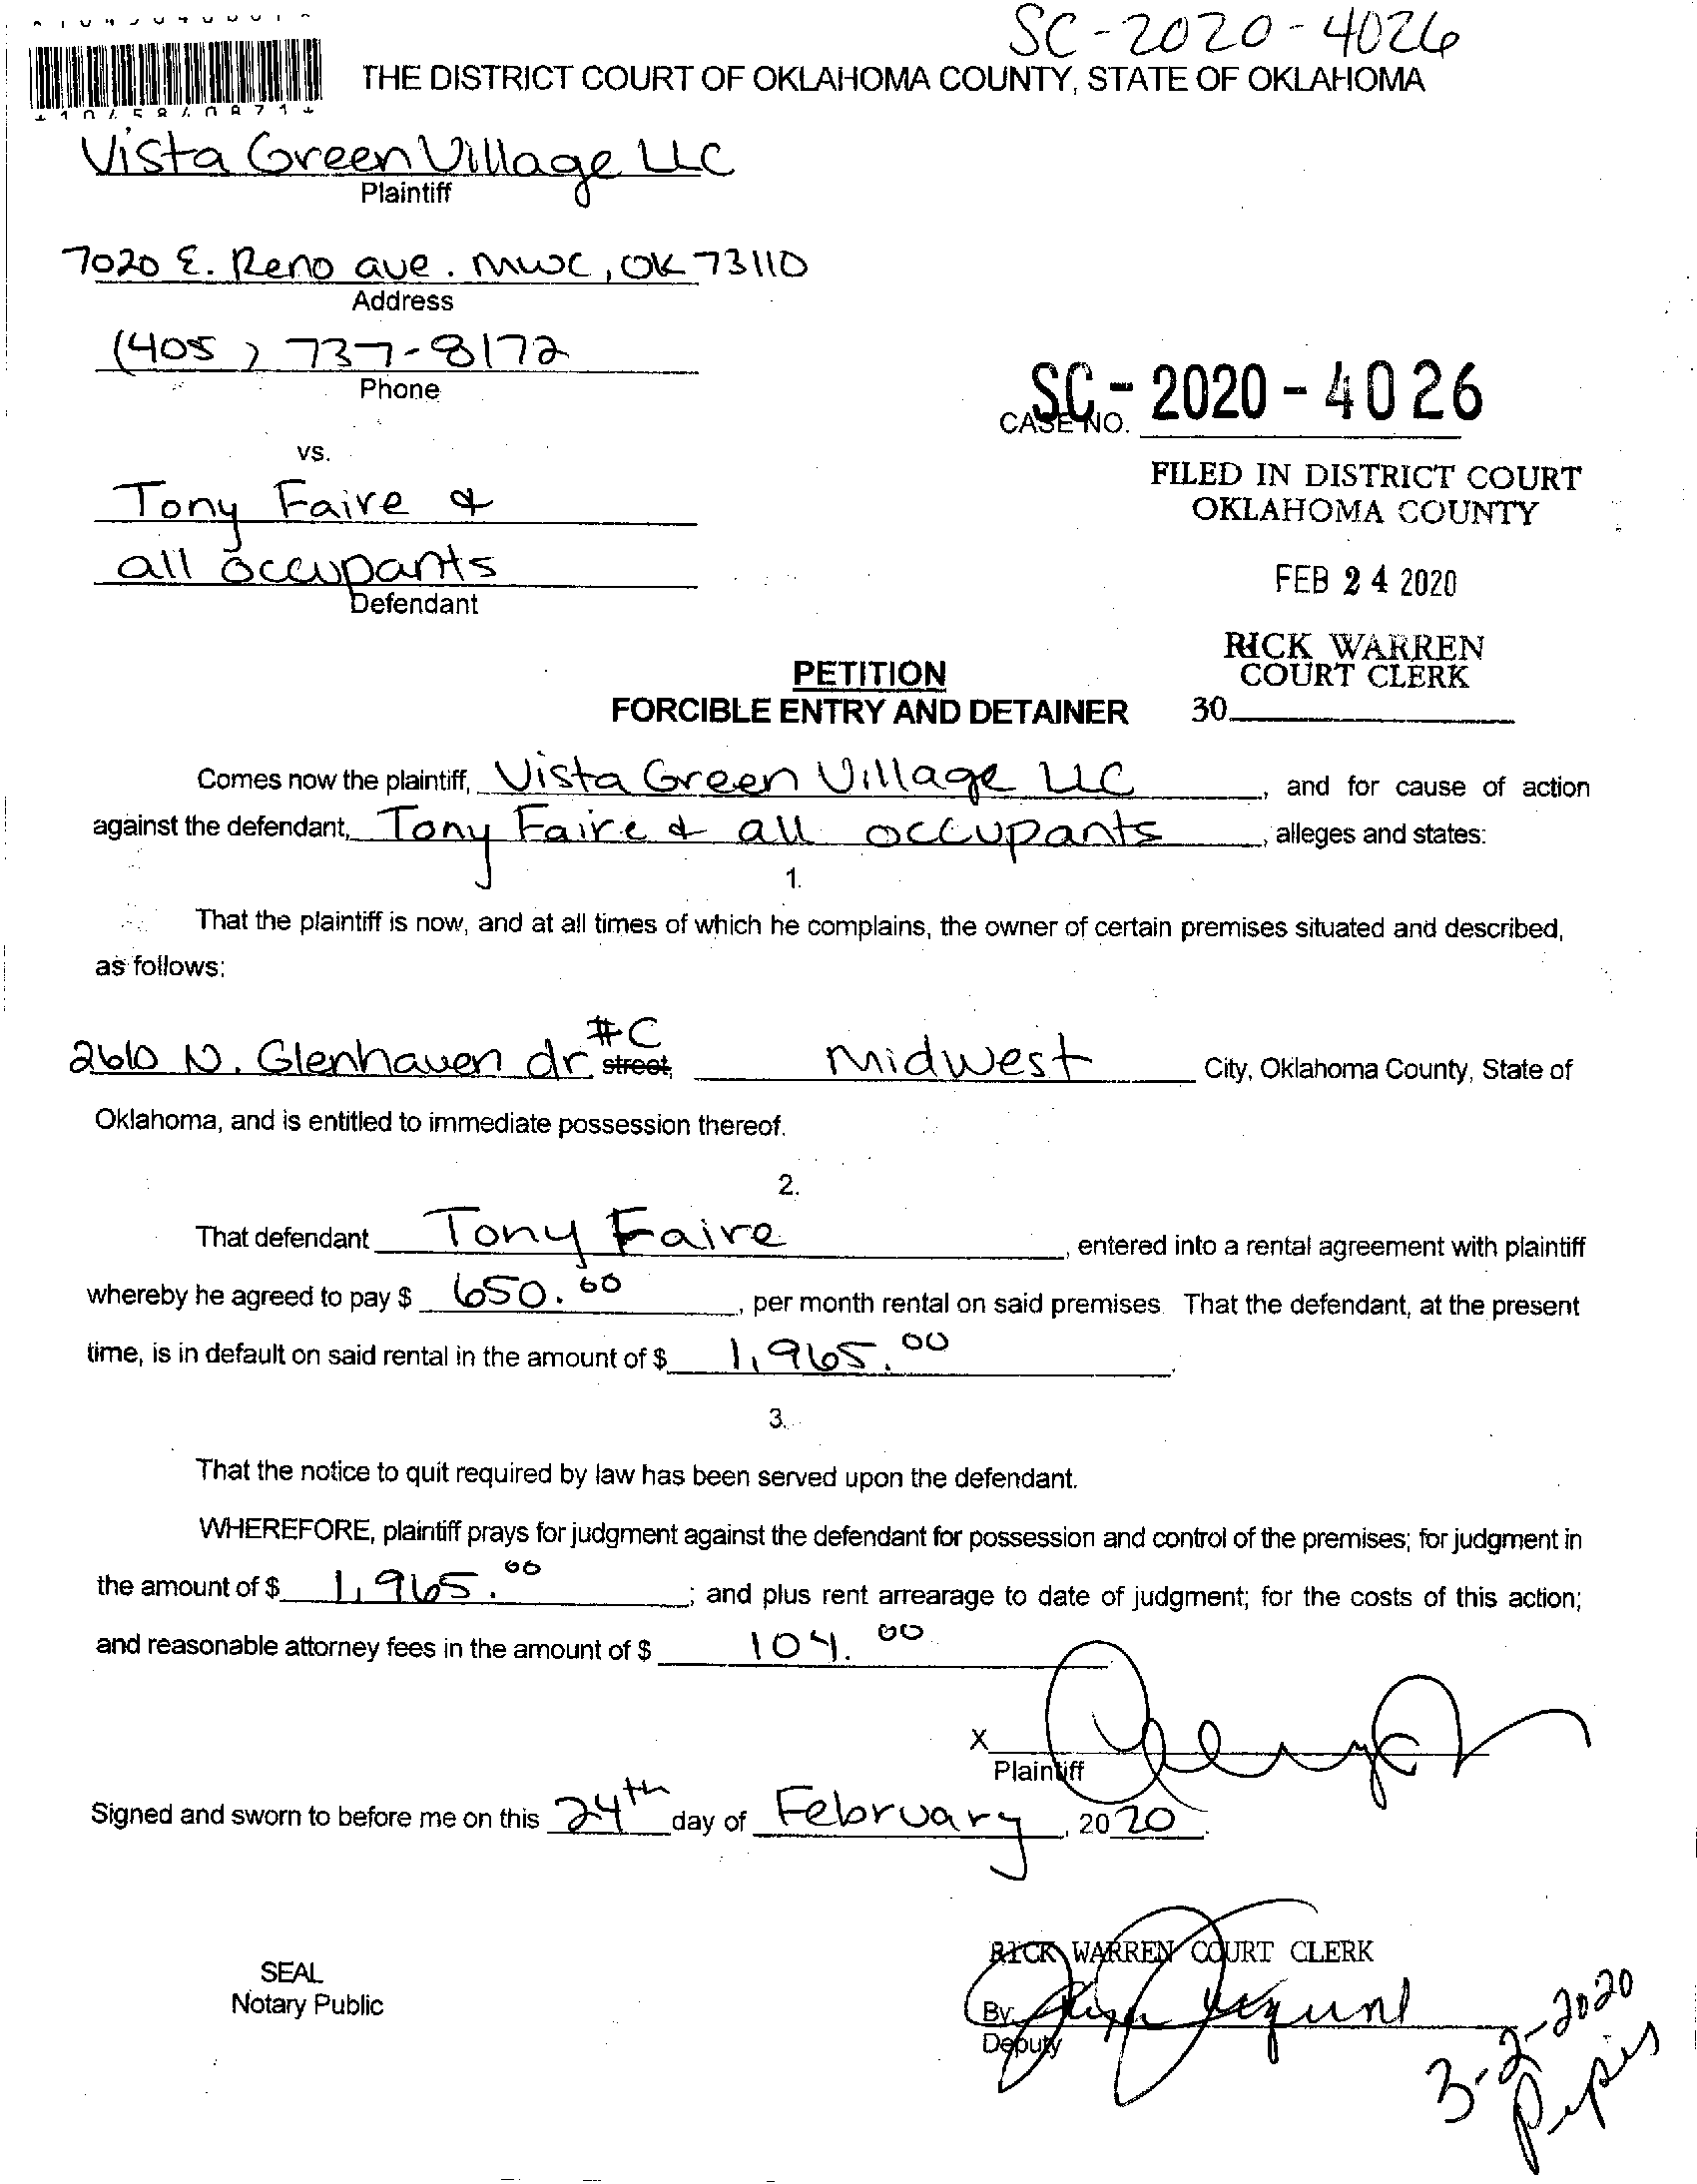 SC-2020-4026
THE DISTRICT COURT OF OKLAHOMA COUNTY, STATE OF OKLAHOMA
Vista Green Village LLC
Plaintiff
7020 E. Reno ave. MWC, OK 73110
Address
(405) 737-8172
Phone
CASE NO. SC-2020-4026
vs.
FILED IN DISTRICT COURT
OKLAHOMA COUNTY
Tony Faire &
all occupants
Defendant
FEB 24 2020
RICK WARREN
COURT CLERK
PETITION
FORCIBLE ENTRY AND DETAINER
30
Comes now the plaintiff, Vista Green Village LLC, and for cause of action
against the defendant, Tony Faire & all occupants, alleges and states:
1.
That the plaintiff is now, and at all times of which he complains, the owner of certain premises situated and described,
as follows:
2610 N. Glenhaven dr #C street, Midwest City, Oklahoma County, State of
Oklahoma, and is entitled to immediate possession thereof.
2.
That defendant Tony Faire, entered into a rental agreement with plaintiff
whereby he agreed to pay $ 650.00, per month rental on said premises. That the defendant, at the present
time, is in default on said rental in the amount of $ 1,965.00.
3.
That the notice to quit required by law has been served upon the defendant.
WHEREFORE, plaintiff prays for judgment against the defendant for possession and control of the premises; for judgment in
the amount of $ 1,965.00; and plus rent arrearage to date of judgment; for the costs of this action;
and reasonable attorney fees in the amount of $ 104.00
X
Plaintiff
Signed and sworn to before me on this 24th day of February, 2020.
RICK WARREN COURT CLERK
SEAL
Notary Public
By
Deputy
3-2-2020